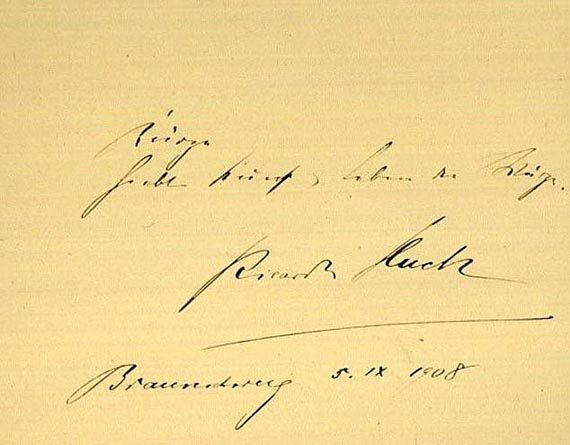 Kürze
Giebt Kunst u. Leben die Würze.
Ricarda Huch
Braunschweig 5. IX 1908